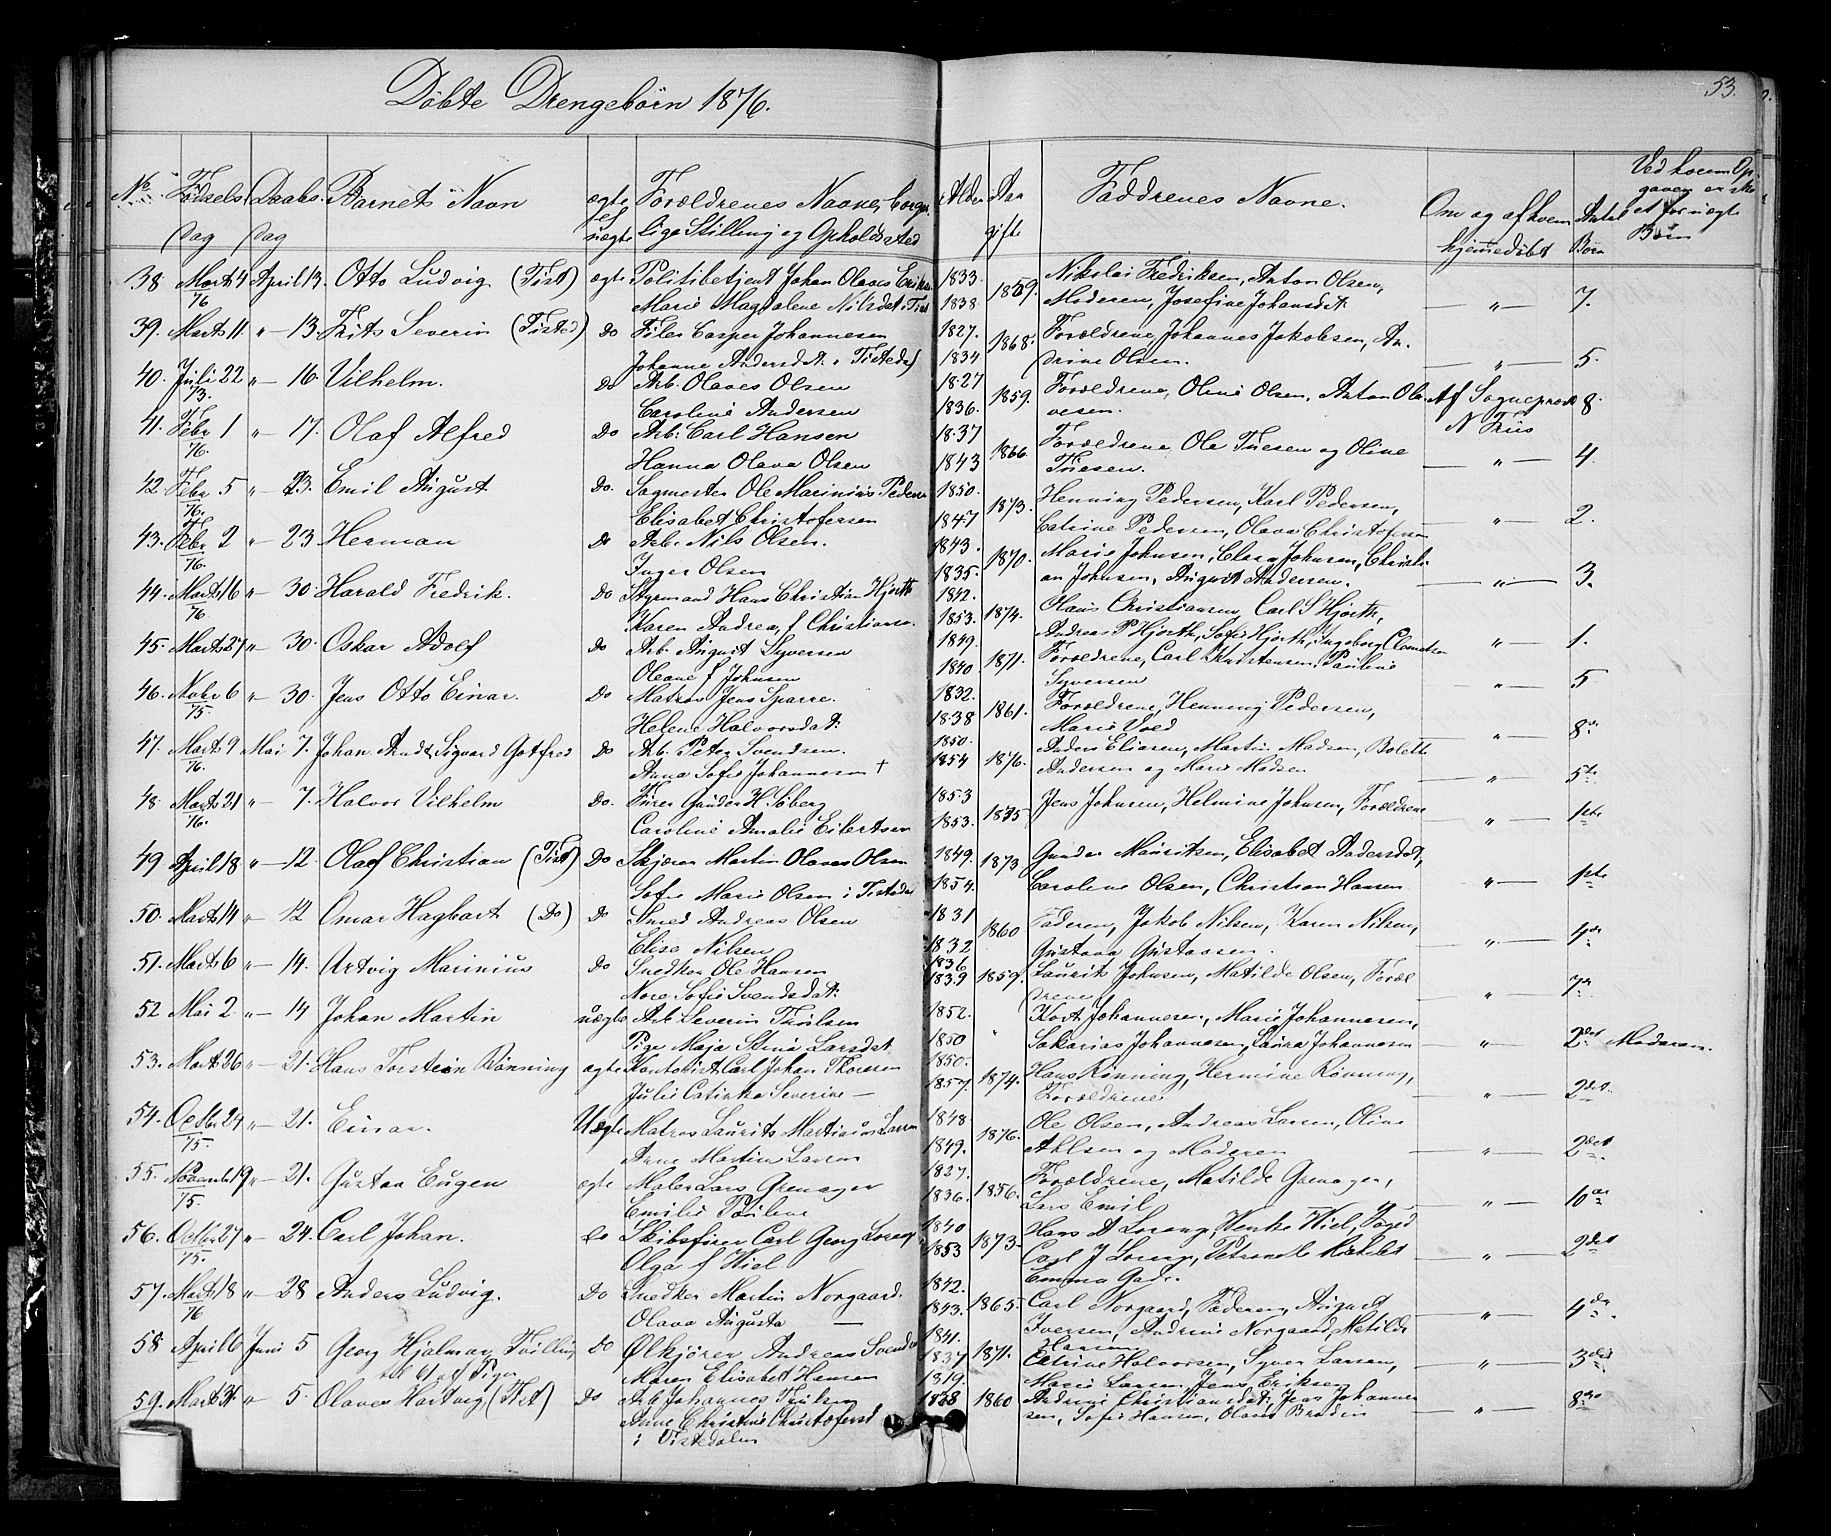 Døbte Drengebørn 1876.
53.
No Fødsels Daabs Barnets Navn ægte Forældrenes Navne, Borger Alder Aar Faddrenes Navne. Om og af hvem Antal Ved hvem Op
dag dag uægte lige Stilling og Opholdssted gifte hjemmedøbt Børn
38 Marts 4 April 13. Otto Ludvig (Tist) ægte Politibetjent Johan Olaves 1833. 1859. Nikolai Fredriksen, Anton Olsen,
76 Marie Magdalene Nilsdet: Tist 1838. Moderen, Josefine Johansdt. — „ — 7.
39. Marts 11 „ — 13. Frits Severin (Tisted) Do Filer Casper Johannesen 1827. 1868. Forældrene, Johannes Jakobsen, An-
Johanne Andersdt. i Tistedal 1834 drine Olsen. — „ — 5.
40. Juli 22 „ — 16. Vilhelm. Do Arb. Olaves Olsen 1827 1859. Forældrene, Oline Olsen, Anton Ola- Af Sogneprest 8.
73. Caroline Andersen 1836. vesen. N Friis
41. Febr 1 „ — 17. Olaf Alfred Do Arb: Carl Hansen 1837 1866. Forældrene, Ole Friesen og Oline
76. Hanna Olava Olsen 1843 Friesen. — „ — 4.
42. Febr 5 „ — 23. Emil August Do. Sagmester Ole Marinius Peders 1850. 1873. Henning Pedersen, Karl Pedersen,
76. Elisabet Christofersen 1847 Catrine Pedersen, Olava Christofersen — „ — 2.
43. Febr 2 „ — 23 Herman Do Arb. Nils Olsen. 1843. 1870. Marie Johnsen, Clara Johnsen, Christi-
76. Inger Olsen 1835. an Johnsen, August Andersen. — „ — 3.
44. Marts 16 „ — 30 Harald Fredrik. Do Styrmand Hans Christian Hjorth 1842. 1874. Olaus Christiansen, Carl S Hjorth,
76 Karen Andrea, f Christians. 1853. Andreas P Hjorth, Sofie Hjorth, Ingeborg Clemetsen „ — 1.
45. Marts 27 „ — 30. Oskar Adolf Do Arb. August Syversen 1849. 1871. Forældrene, Carl Kristensen, Pauline
Oleane f Johnsen 1840. Syversen „ — 5
46. Nobr 6 „ — 30. Jens Otto Einar. Do Matros Jens Sparre. 1832. 1861. Forældrene, Henning Pedersen,
75. Helene Halvorsdat: 1838 Marie Voed — „ — 8
47. Marts 9 Mai 7. Johan Arndt Sigvard Gotfred Do Arb. Peter Svendsen. 1850. 1876. Anders Eliasen, Martin Madsen, Bolette
76. Anna Sofie Johannesen † 1854 Andersen og Marie Madsen — „ — 5te
48. Marts 21 „ — 7. Halvor Vilhelm Do. Gunder H. Søberg 1853 1875 Jens Johnsen, Helmine Johnsen, Forældrene
76. Caroline Amalie Eilertsen 1853. „ — 1ste
49 April 18 „ — 12. Olaf Christian (Tist) Do Skjærer Martin Olaves Olsen 1849. 1873 Gunder Mauritsen, Elisabet Andersdat,
Sofie Marie Olsen i Tistedal 1854. Caroline Olsen, Christian Hansen „ — 1ste
50. Marts 14 „ — 12 Omar Hagbart (Do) Do Smed Andreas Olsen 1831 1860 Faderen, Jakob Nilsen, Karen Nilsen,
Elise Nilsen 1832 Gustava Gustavsen. „ — 4de
51. Marts 6 „ — 14. Artvig Marinius Do Snedker Ole Hansen 1836 1859. Laurits Johnsen, Matilde Olsen, Foræl
Nore Sofie Svendsdat: 1839 drene „ — 7
52 Mai 2 „ — 14 Johan Martin uægte Arb. Severin 1852. „ Kort Johannesen, Marie Johannesen,
Pige Maja Stina Larsdat 1850 Sakarias Johannesen, Laura Johannesen „ — 2det Moderen.
53. Marts 26 „ — 21. Hans Torstein Rønning ægte Kontorist Carl Johan Thoresen 1850. 1874. Hans Rønning, Hermine Rønning,
Julie Catinka Severine — 1857. Forældrene — „ — 2det.
54. Octbr 24 „ — 21. Einar. Uægte Matros Laurits Martinius Larsen 1848 1876. Ole Olsen, Andreas Larsen, Oline
75. Anne Martine Larsen 1849. Ahlsen og Moderen — „ — 2det
55. Novembr 19 „ — 21. Gustav Eugen ægte Maler Lars Grenager 1827. 1856. Forældrene, Matilde Grenager,
75. Emilie 1836. Lars Emil „ — 10
56. Octbr 27 „ — 24. Carl Johan. Do Skibsfører Carl Georg Lorang 1840 1873. Hans A Lorang, Wenke Wiel,
75. Olga f Wiel 1853 Carl J Lorang, „ — 2det
Emma Gade.
57. Marts 18 „ — 28 Anders Ludvig. Do Snedker Martin Norgaard. 1842. 1865. Carl Norgaard, Faderen, August
76 Olava Augusta — 1843. Iversen, Andrine Norgaard, Matilde „ — 4de
Hansen
58 April 6 Juni 5 Georg Hjalmar, Tvilling Do Ølkjører Andreas Svends 1841. 1871. Catrine Halvorsen, Syver Larsen,
Maren Elisabet Hansen 1837 Marie Larsen, Jens Eriksen „ — 3die
59. Marts 31 „ — 5 Olaves Hartvig (Tist) Do Arb. Johannes 1819. 1860 Andrine Christiansdat, Jens Johanne-
Anne Christine Christofersd 1838 sen, Sofie Hansen, Olaus Braaden „ — 8
i Tistedalen